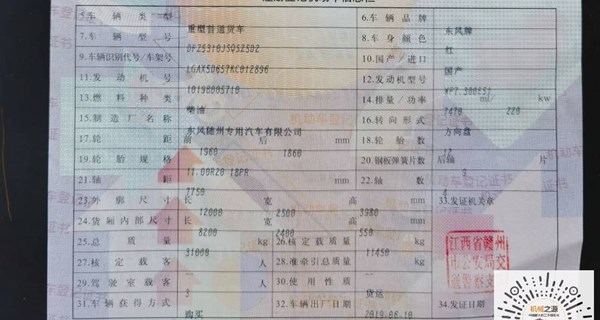 5.车辆类型 重型普通货车 6.车辆品牌 东风牌
7.车辆型号 8.车身颜色 红
9.车辆识别代号/车架号 LGAX5D657KC012896 10.国产/进口 国产
11.发动机号 12.发动机型号
13.燃料种类 柴油 14.排量/功率 7470 ml/ 220 kw
15.制造厂名称 东风随州专用汽车有限公司 16.转向形式 方向盘
17.轮距 前 1960 后 1860 mm 18.轮胎数 12
19.轮胎规格 11.00R20 18PR 20.钢板弹簧片数 后轴 9 片
21.轴距 7750 mm 22.轴数 4
23.外廓尺寸 长 12000 宽 2500 高 3980 mm 33.发证机关章
24.货厢内部尺寸 长 8200 宽 2400 高 550 mm
25.总质量 31000 kg 26.核定载质量 11450 kg
27.核定载客 人 28.准牵引总质量 kg
29.驾驶室载客 3 人 30.使用性质 货运
31.车辆获得方式 购买 32.车辆出厂日期 2019-06-10 34.发证日期
江西省赣州
市公安局交
通警察支
机械之源